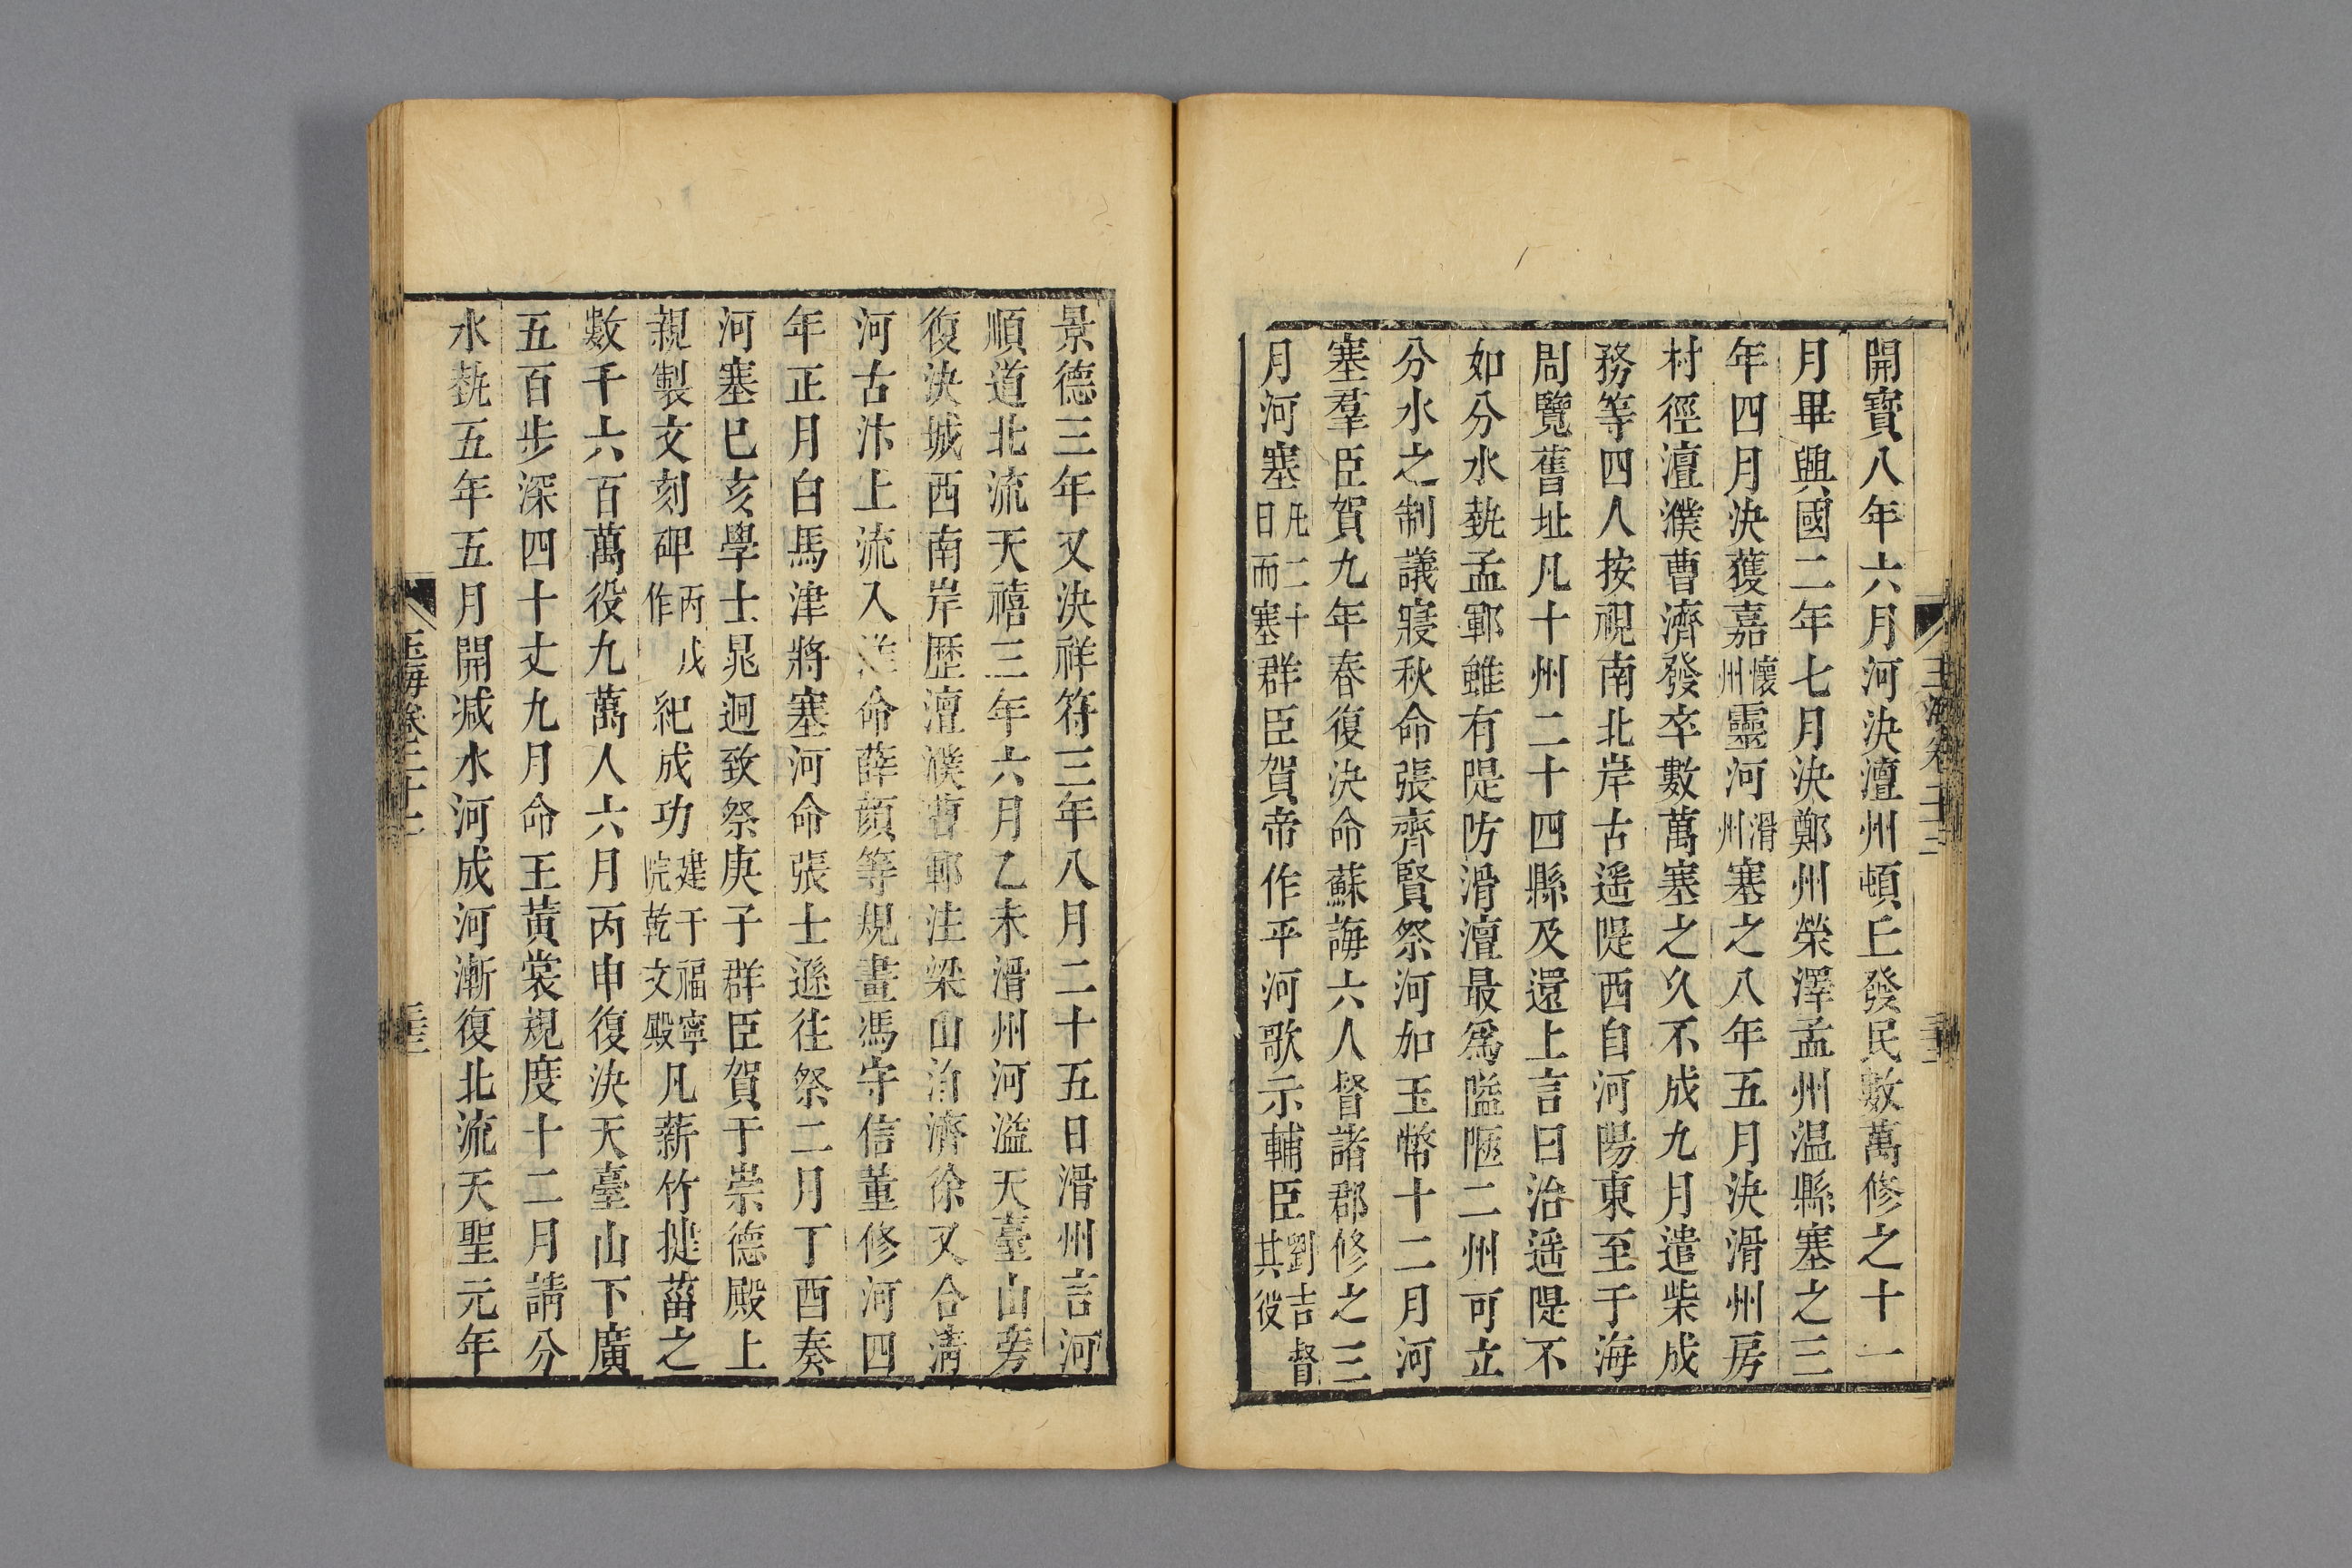 開寶八年六月河決澶州頓丘發民數萬修之十一
月畢興國二年七月決鄭州滎澤孟州温縣塞之三
年四月決獲嘉懷州靈河滑州塞之八年五月決滑州房
村徑澶濮曹濟發卒數萬塞之久不成九月遣柴成
務等四人按視南北岸古遥隄西自河陽東至于海
周覽舊址凡十州二十四縣及還上言曰治遥隄不
如分水埶孟鄆雖有隄防滑澶最爲隘陿二州可立
分水之制議寢秋命張齊賢祭河加玉幣十二月河
塞羣臣賀九年春復決命蘇誨六人督諸郡修之三
月河塞凡二十日而塞群臣賀帝作平河歌示輔臣劉吉督其役
景德三年又決祥符三年八月二十五日滑州言河
順道北流天禧三年六月乙未滑州河溢天臺山旁
復決城西南岸歴澶濮曹鄆注梁山泊濟徐又合清
河古汴上流入淮命薛顔等規畫馮守信董修河四
年正月白馬津將塞河命張士遜往祭二月丁酉奏
河塞巳亥學士晁迥致祭庚子群臣賀于崇德殿上
親製文刻碑丙戌作紀成功建于福寧院乾文殿凡薪竹揵菑之
數千六百萬役九萬人六月丙申復決天臺山下廣
五百步深四十丈九月命王黃裳規度十二月請分
水埶五年五月開減水河成河漸復北流天聖元年
玉海卷二十二